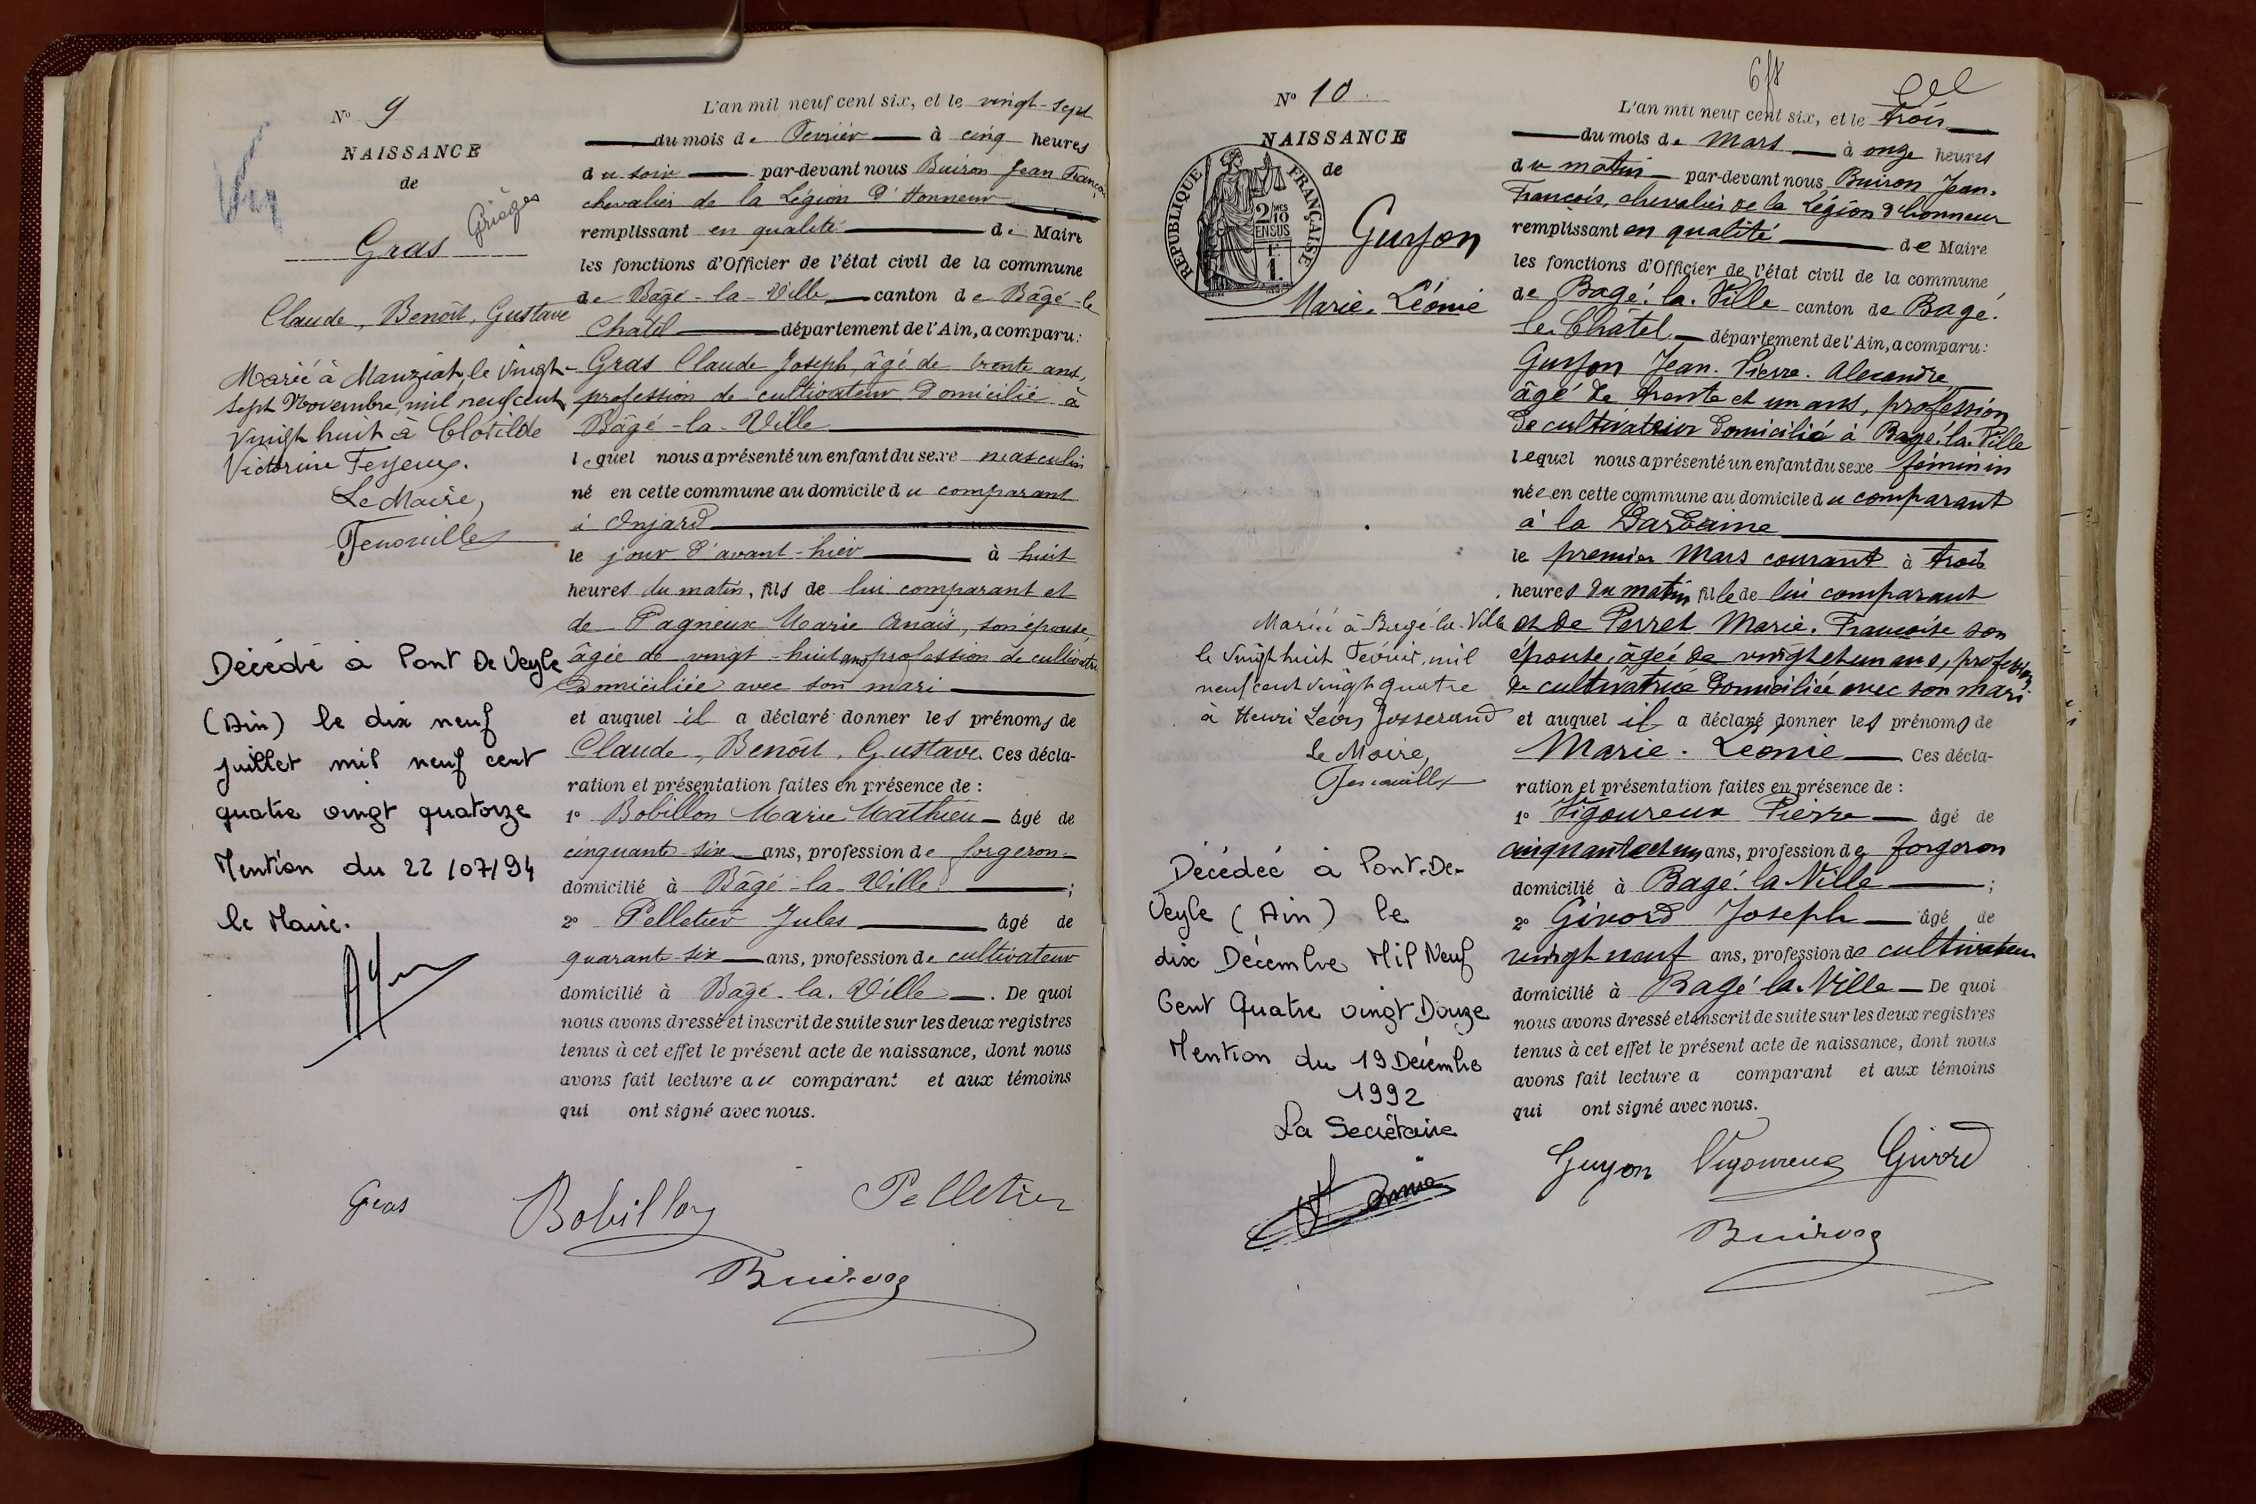 Nº 9
NAISSANCE
de
Grièges
Gras
Claude, Benoît, Gustave
Marié à Manziat, le vingt-
sept Novembre, mil neuf cent
vingt huit à Clotilde
Victorine
Le Maire,
Décédé à Pont De Veyle
(Ain) le dix neuf
juillet mil neuf cent
quatre vingt quatorze
Mention du 22/07/94
le Maire.
L'an mil neuf cent six, et le vingt-sept
du mois de Février à cinq heures
du soir par-devant nous Buiron Jean François
chevalier de la Légion d'Honneur
remplissant en qualité de Maire
les fonctions d'Officier de l'état civil de la commune
de Bâgé-la-Ville canton de Bâgé-le
Châtel département de l'Ain, a comparu:
Gras Claude Joseph, âgé de trente ans,
profession de cultivateur domicilié à
Bâgé-la-Ville
lequel nous a présenté un enfant du sexe masculin
né en cette commune au domicile du comparant
à Onjard
le jour d'avant-hier à huit
heures du matin, fils de lui comparant et
de Pagneux Marie Anaïs, son épouse,
âgée de vingt-huit ans profession de cultivatrice
domiciliée avec son mari
et auquel il a déclaré donner les prénoms de
Claude, Benoît, Gustave. Ces décla-
ration et présentation faites en présence de :
1º Bobillon Marie Mathieu âgé de
cinquante-six ans, profession de forgeron
domicilié à Bâgé-la-Ville ;
2º Pelletier Jules âgé de
quarante-six ans, profession de cultivateur
domicilié à Bâgé-la-Ville. De quoi
nous avons dressé et inscrit de suite sur les deux registres
tenus à cet effet le présent acte de naissance, dont nous
avons fait lecture au comparant et aux témoins
qui ont signé avec nous.
Gras Bobillon Pelletier
Buiron
Nº 10
NAISSANCE
de
RÉPUBLIQUE FRANÇAISE
2/10MES
EN SUS
1F
Guyon
Marie-Léonie
Mariée à Bagé-la-Ville
le vingt huit Février mil
neuf cent vingt quatre
à Henri Léon Josserand
Le Maire,
Décédée à Pont-De-
Veyle (Ain) le
dix Décembre Mil Neuf
Cent Quatre vingt Douze
Mention du 19 Décembre
1992
La Secrétaire
L'an mil neuf cent six, et le trois
du mois de Mars à onze heures
du matin par-devant nous Buiron Jean-
François, chevalier de la Légion d'honneur
remplissant en qualité de Maire
les fonctions d'Officier de l'état civil de la commune
de Bagé-la-Ville canton de Bagé-
le-Châtel département de l'Ain, a comparu:
Guyon Jean-Pierre-Alexandre
âgé de trente et un ans, profession
de cultivateur domicilié à Bagé-la-Ville
lequel nous a présenté un enfant du sexe féminin
née en cette commune au domicile du comparant
à la
le premier Mars courant à trois
heures du matin fille de lui comparant
et de Perret Marie-Françoise son
épouse, âgée de vingt et un ans, profession
de cultivatrice domiciliée avec son mari
et auquel il a déclaré donner les prénoms de
Marie-Léonie Ces décla-
ration et présentation faites en présence de :
1º Vigoureux Pierre âgé de
cinquante et un ans, profession de forgeron
domicilié à Bagé-la-Ville ;
2º Givord Joseph âgé de
vingt neuf ans, profession de cultivateur
domicilié à Bagé-la-Ville De quoi
nous avons dressé et inscrit de suite sur les deux registres
tenus à cet effet le présent acte de naissance, dont nous
avons fait lecture a comparant et aux témoins
qui ont signé avec nous.
Guyon Vigoureux Givord
Buiron